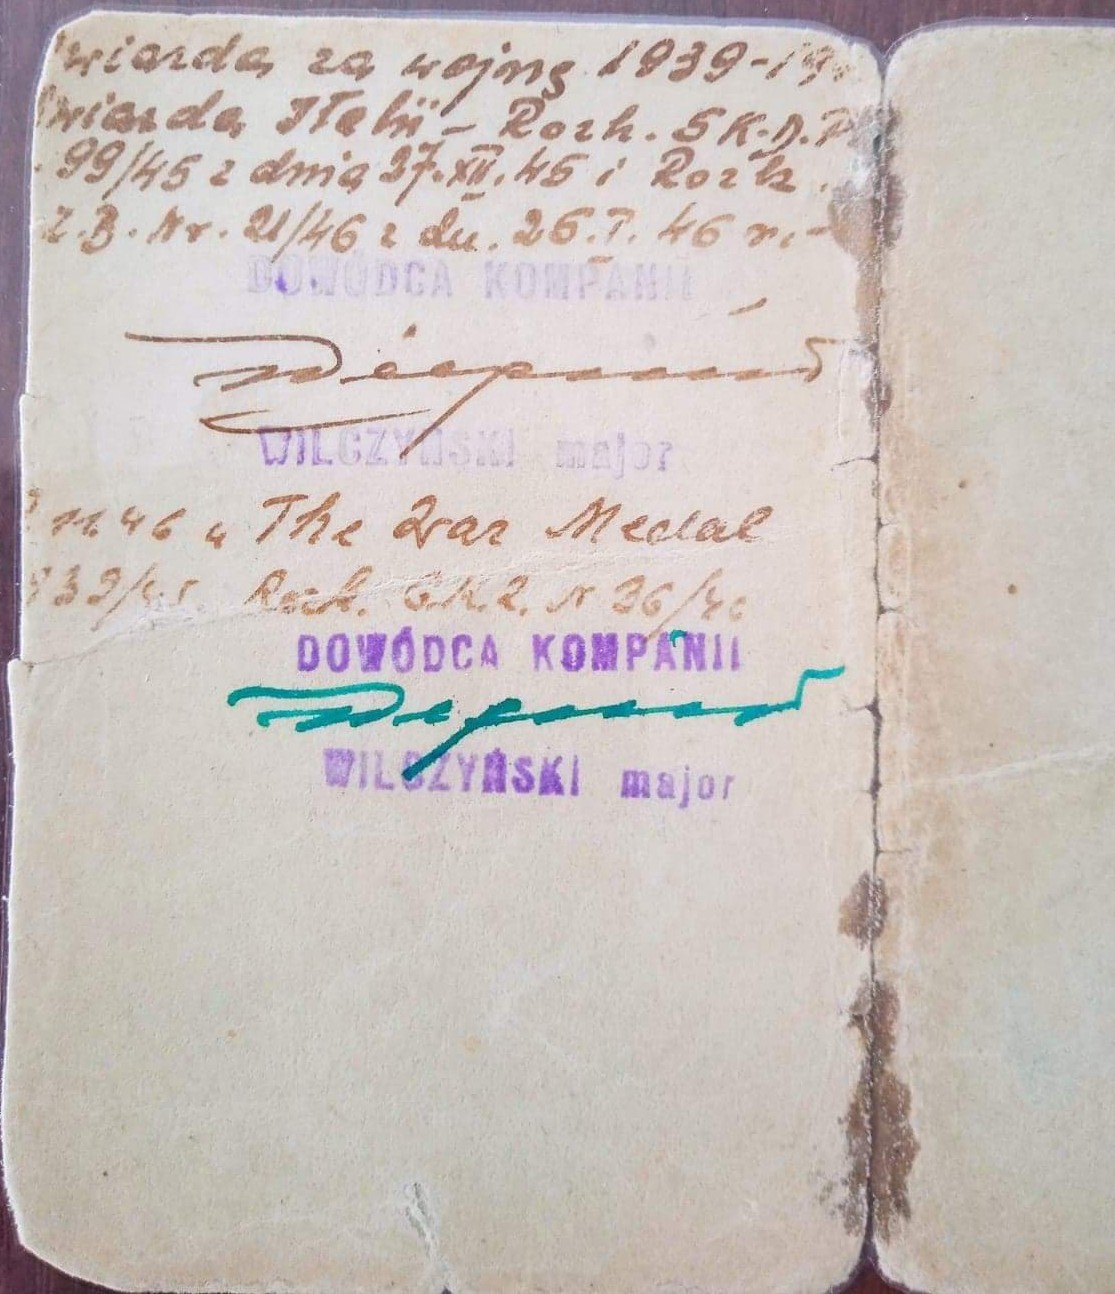 wiazda za wojnę 1939-19
wiazda Italii - Rozk. 5 K.D.P
99/45 z dnia 27.XII.45 i Rozk.
Z.B. Nr. 21/46 z dn. 26.I. 46 r. -
DOWÓDCA KOMPANII
WILCZYŃSKI major
46 The War Medal
939/45. Rozk. N 36/46
DOWÓDCA KOMPANII
WILCZYŃSKI major